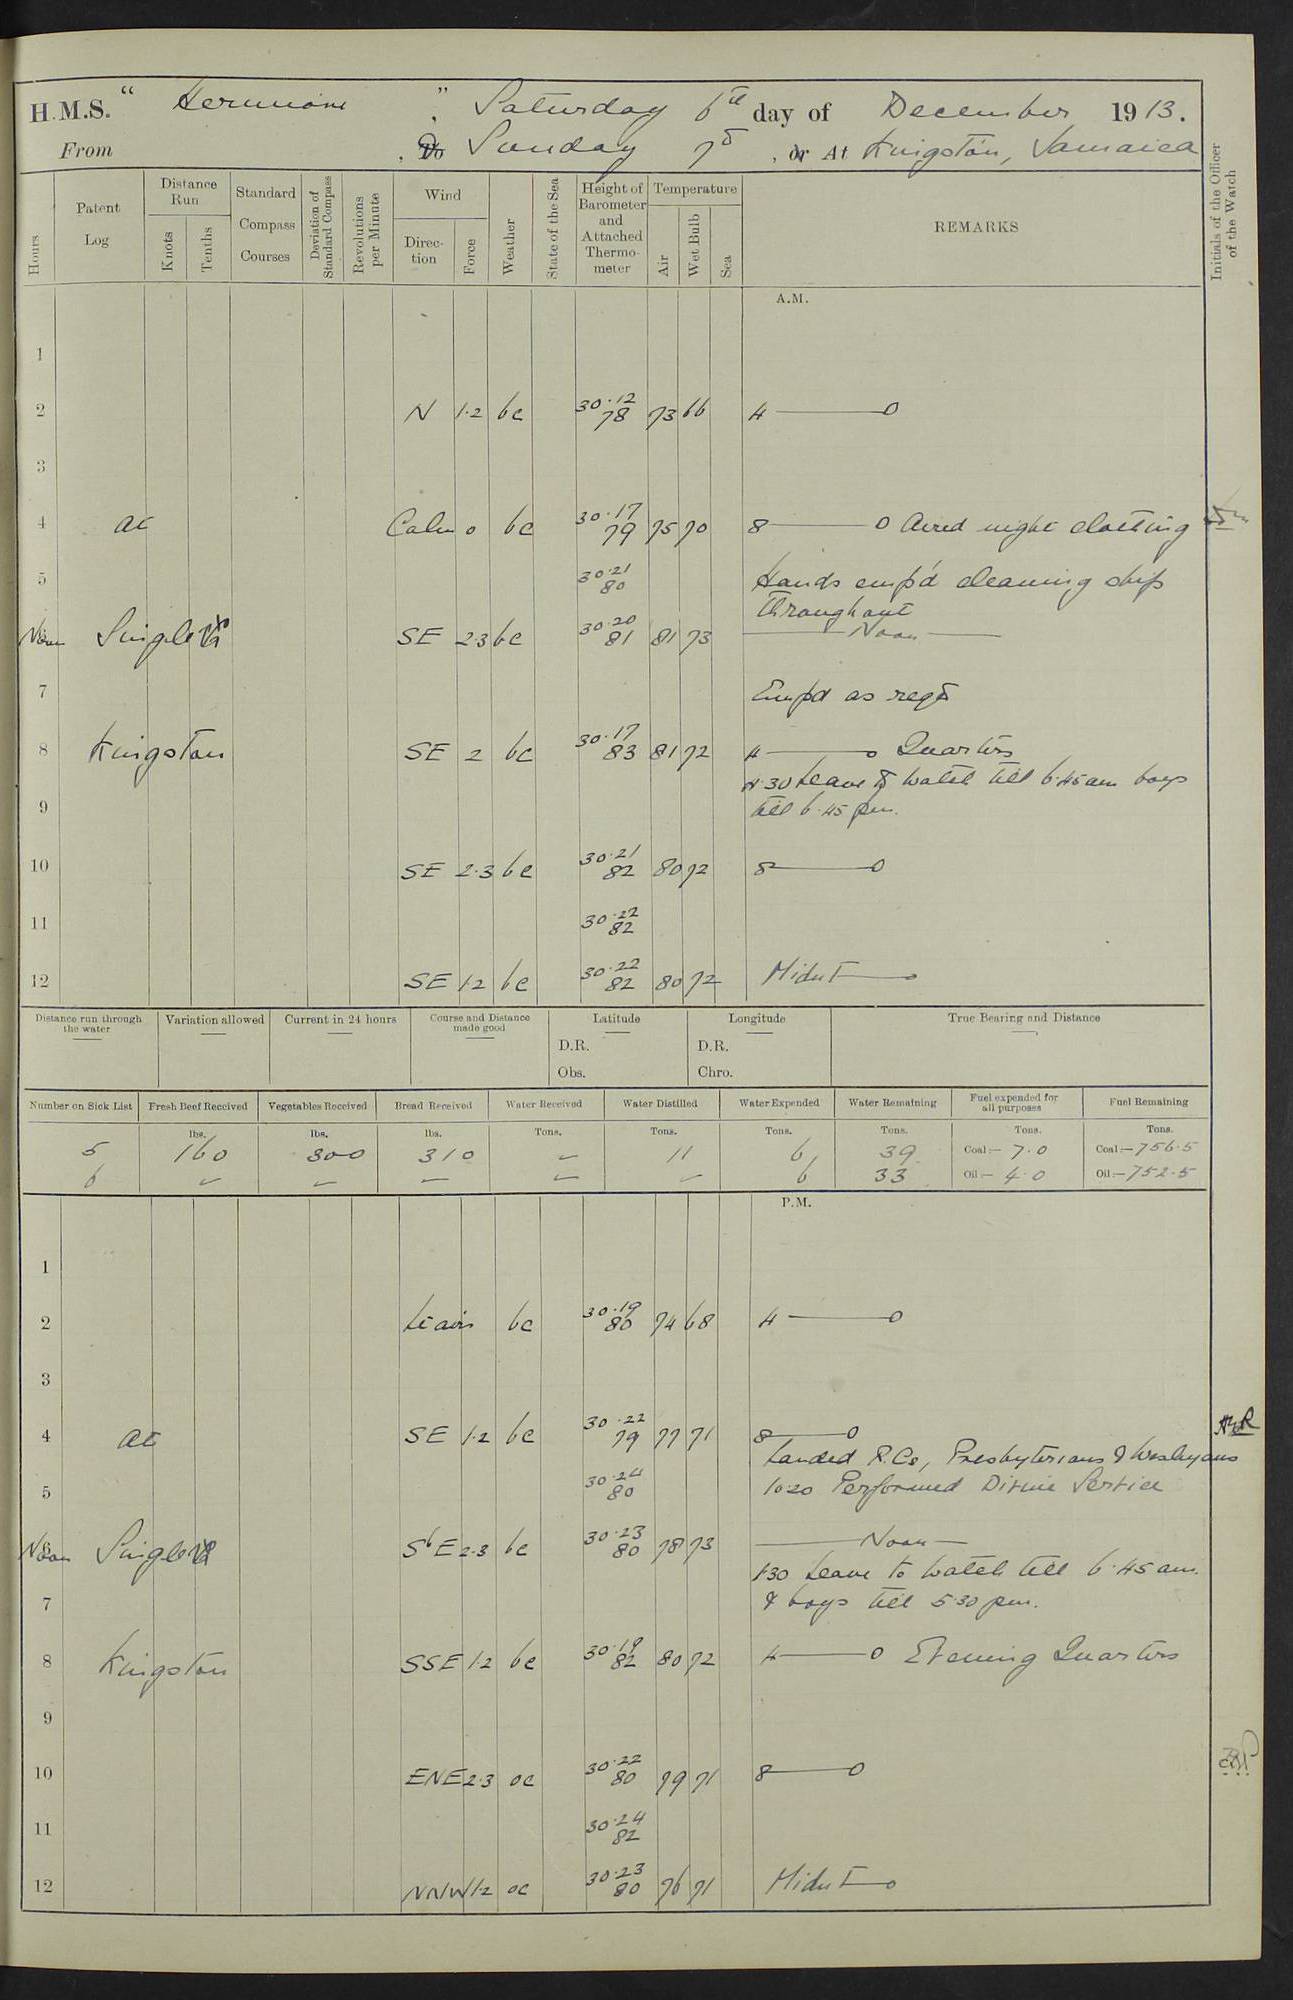 H.M.S. " Hermione " , Saturday 6th day of December 1913.
From , To Sunday 7th , or At Kingston, Jamaica
Hours
Patent Log
Distance Run
Knots
Tenths
Standard Compass Courses
Deviation of Standard Compass
Revolutions per Minute
Wind
Direction
Force
Weather
State of the Sea
Height of Barometer and Attached Thermometer
Temperature
Air
Wet Bulb
Sea
REMARKS
Initials of the Officer of the Watch
A.M.
1
2 N 1.2 bc 30.12 78 73 66 4 —— 0
3
4 at Calm 0 bc 30.17 79 75 70 8 —— 0 Aired night clothing
5 30.21 80 Hands emp'd cleaning ship
throughout
Noon Single 30.20 81 SE 2.3 bc 81 73 —— Noon ——
7 Emp'd as reqd
8 Kingston SE 2 bc 30.17 83 81 72 4 —— 0 Quarters
4.30 Leave to watch till 6.45 am boys
9 till 6.45 pm.
10 SE 2.3 bc 30.21 82 80 72 8 —— 0
11 30.22 82
12 SE 1.2 bc 30.22 82 80 72 Midnt —— 0
Distance run through the water
Variation allowed
Current in 24 hours
Course and Distance made good
Latitude
D.R.
Obs.
Longitude
D.R.
Chro.
True Bearing and Distance
Number on Sick List Fresh Beef Received Vegetables Received Bread Received Water Received Water Distilled Water Expended Water Remaining Fuel expended for all purposes Fuel Remaining
lbs. lbs. lbs. Tons. Tons. Tons. Tons. Tons. Tons.
5 160 300 310 – 11 6 39 Coal:– 7.0 Coal:– 756.5
6 – – – – – 6 33 Oil:– 4.0 Oil:– 752.5
P.M.
1
2 Lt airs bc 30.19 80 74 68 4 —— 0
3
4 at SE 1.2 bc 30.22 79 77 71 8 —— 0
Landed R.Cs, Presbyterians & Wesleyans
5 30.24 80 10.20 Performed Divine Service
Noon Single SbE 2.3 bc 30.23 80 78 73 —— Noon ——
1.30 Leave to watch till 6.45 am.
7 & boys till 5.30 pm.
8 Kingston SSE 1.2 bc 30.19 82 80 72 4 —— 0 Evening Quarters
9
10 ENE 2.3 oc 30.22 80 79 71 8 —— 0
11 30.24 82
12 NNW 1.2 oc 30.23 80 76 71 Midnt —— 0